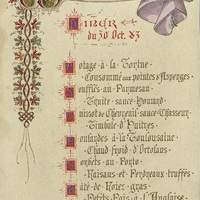 Diner
du 30 Oct. 83
Potage à la Tortue
Consommé aux pointes d'Asperges
Soufflés au Parmesan
Truite sauce
Cuissot de Chevreuil sauce Chasseur
Timbale d'Huîtres
Poulardes à la Toulousaine
Chaud-froid d'Ortolans
Sorbets au Porto
Faisans et Perdreaux truffés
Pâté de Foies gras
Petits Pois à l'Anglaise